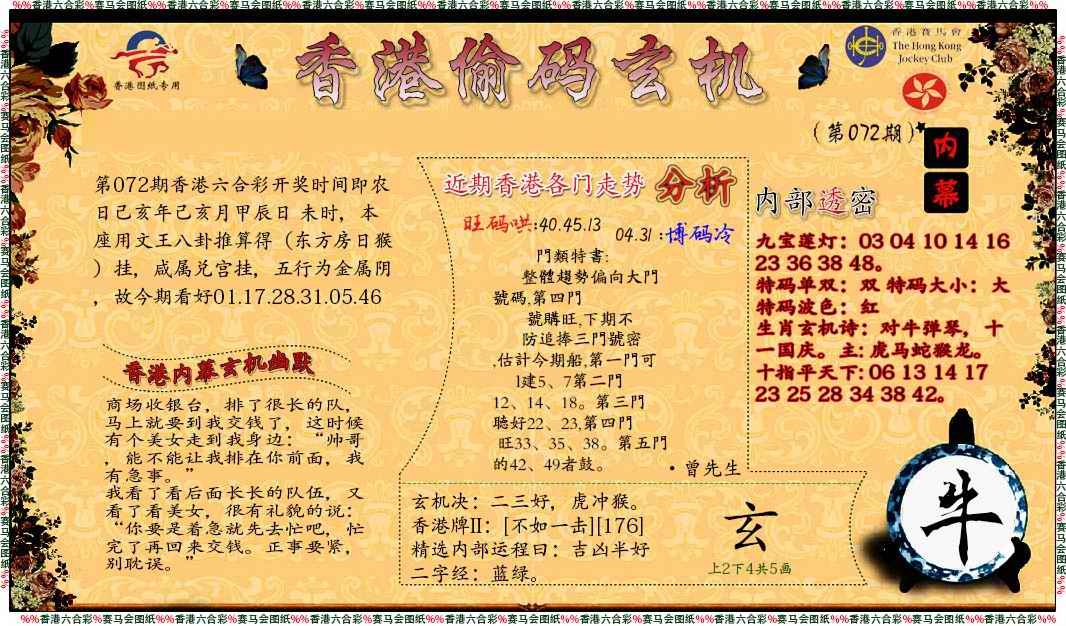 %%香港六合彩%赛马会图纸%%香港六合彩%赛马会图纸%%香港六合彩%赛马会图纸%%香港六合彩%赛马会图纸%%香港六合彩%赛马会图纸%%香港六合彩%赛马会图纸%%香港六合彩%%
香港图纸专用
香港偷码玄机
香港賽馬會
The Hong Kong
Jockey Club
(第072期)
内
幕
第072期香港六合彩开奖时间即农
日己亥年己亥月甲辰日 未时，本
座用文王八卦推算得（东方房日猴
）挂，咸属兑宫挂，五行为金属阴
，故今期看好01.17.28.31.05.46
香港内幕玄机幽默
商场收银台，排了很长的队，
马上就要到我交钱了，这时候
有个美女走到我身边：“帅哥
，能不能让我排在你前面，我
有急事。”
我看了看后面长长的队伍，又
看了看美女，很有礼貌的说：
“你要是着急就先去忙吧，忙
完了再回来交钱。正事要紧，
别耽误。”
近期香港各门走势 分析
旺码哄:40.45.13
04.31 :博码冷
門類特書:
整體趨勢偏向大門
號碼,第四門
號購旺,下期不
防追捧三門號密
,估計今期船,第一門可
1建5、7第二門
12、14、18。第三門
聽好22、23,第四門
旺33、35、38。第五門
的42、49者鼓。
·曾先生
玄机决：二三好，虎冲猴。
香港牌II：[不如一击][176]
精选内部运程曰：吉凶半好
二字经：蓝绿。
玄
上2下4共5画
内部透密
九宝莲灯：03 04 10 14 16
23 36 38 48。
特码单双：双 特码大小：大
特码波色：红
生肖玄机诗：对牛弹琴，十
一国庆。主: 虎马蛇猴龙。
十指平天下: 06 13 14 17
23 25 28 34 38 42。
牛
%%香港六合彩%赛马会图纸%%香港六合彩%赛马会图纸%%香港六合彩%赛马会图纸%%香港六合彩%赛马会图纸%%香港六合彩%赛马会图纸%%香港六合彩%赛马会图纸%%香港六合彩%%